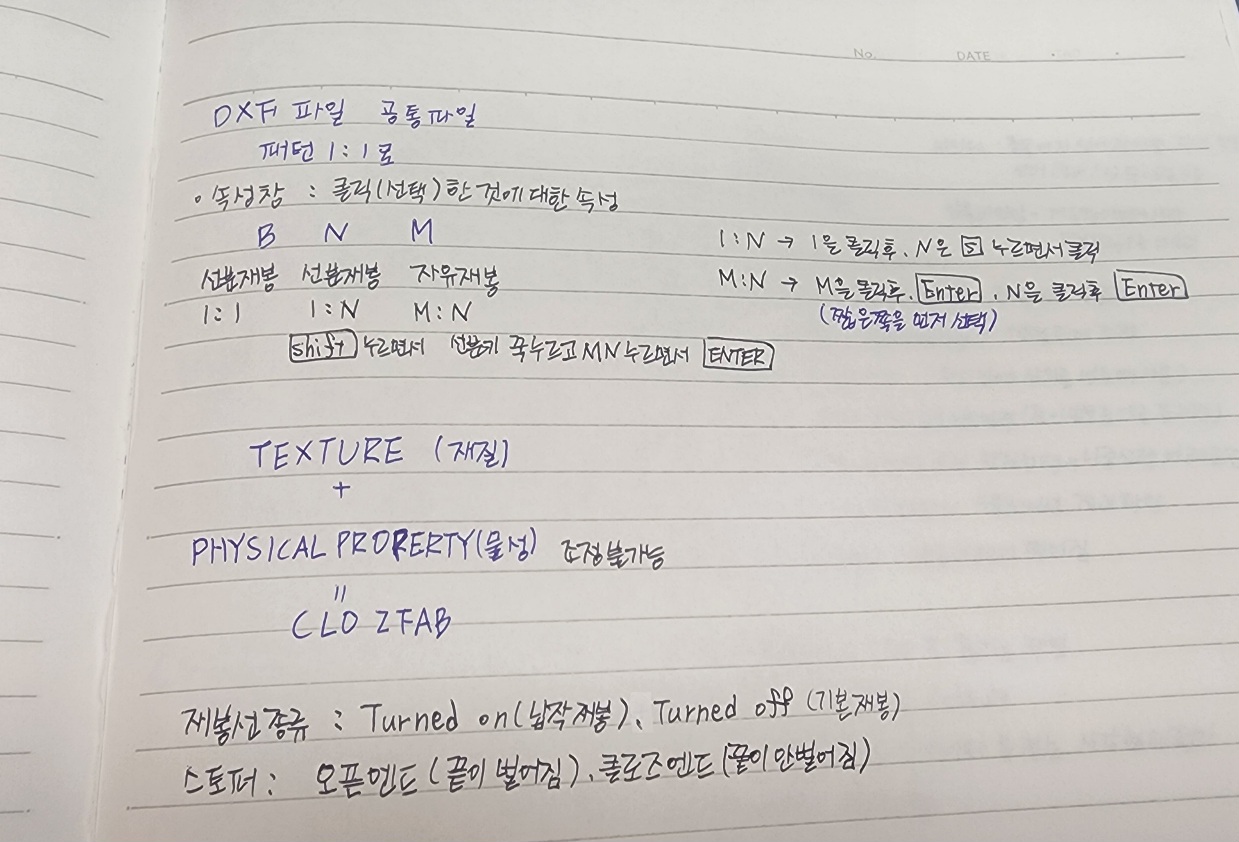 No. DATE
DXF 파일 공통파일
패턴 1:1로
◦ 속성창 : 클릭(선택)한 것에 대한 속성
B N M
1:N → 1을 클릭후, N은 S 누르면서 클릭
선분재봉 선분재봉 자유재봉
M:N → M을 클릭후, Enter, N을 클릭후 Enter
1:1 1:N M:N
(짧은쪽을 먼저 선택)
shift 누르면서 선분키 꾹누르고 MN누르면서 ENTER
TEXTURE (재질)
+
PHYSICAL PROPERTY(물성) 조정불가능
=
CLO ZFAB
재봉선종류 : Turned on(납작재봉), Turned off (기본재봉)
스토퍼 : 오픈엔드 (끝이 벌어짐), 클로즈엔드 (끝이 안벌어짐)